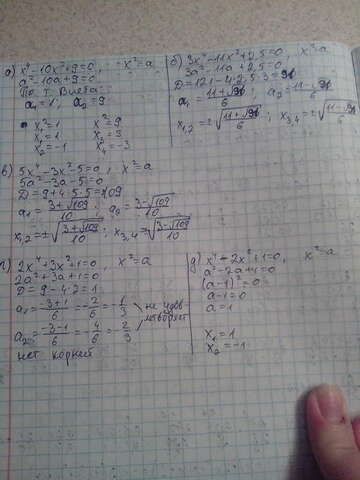 а) x⁴-10x²+9=0, x²=a
a²-10a+9=0
По т. Виета:
a₁=1; a₂=9
x₁²=1 x²=9
x₁=1 x₃=3
x₂=-1 x₄=-3
б) 3x⁴-11x²+2,5=0, x²=a
3a²-11a+2,5=0
D=121-4·2,5·3=91
a₁=(11+√91)/6; a₂=(11-√91)/6
x₁,₂=±√((11+√91)/6); x₃,₄=±√((11-√91)/6)
в) 5x⁴-3x²-5=0, x²=a
5a²-3a-5=0
D=9+4·5·5=109
a₁=(3+√109)/10; a₂=(3-√109)/10
x₁,₂=±√((3+√109)/10); x₃,₄=√((3-√109)/10)
г) 2x⁴+3x²+1=0, x²=a
2a²+3a+1=0
D=9-4·2=1
a₁=(-3+1)/6=-2/6=-1/3
не удов-
летворяет
a₂=(-3-1)/6=-4/6=-2/3
нет корней
д) x⁴-2x²+1=0, x²=a
a²-2a+1=0
(a-1)²=0
a-1=0
a=1
x₁=1
x₂=-1